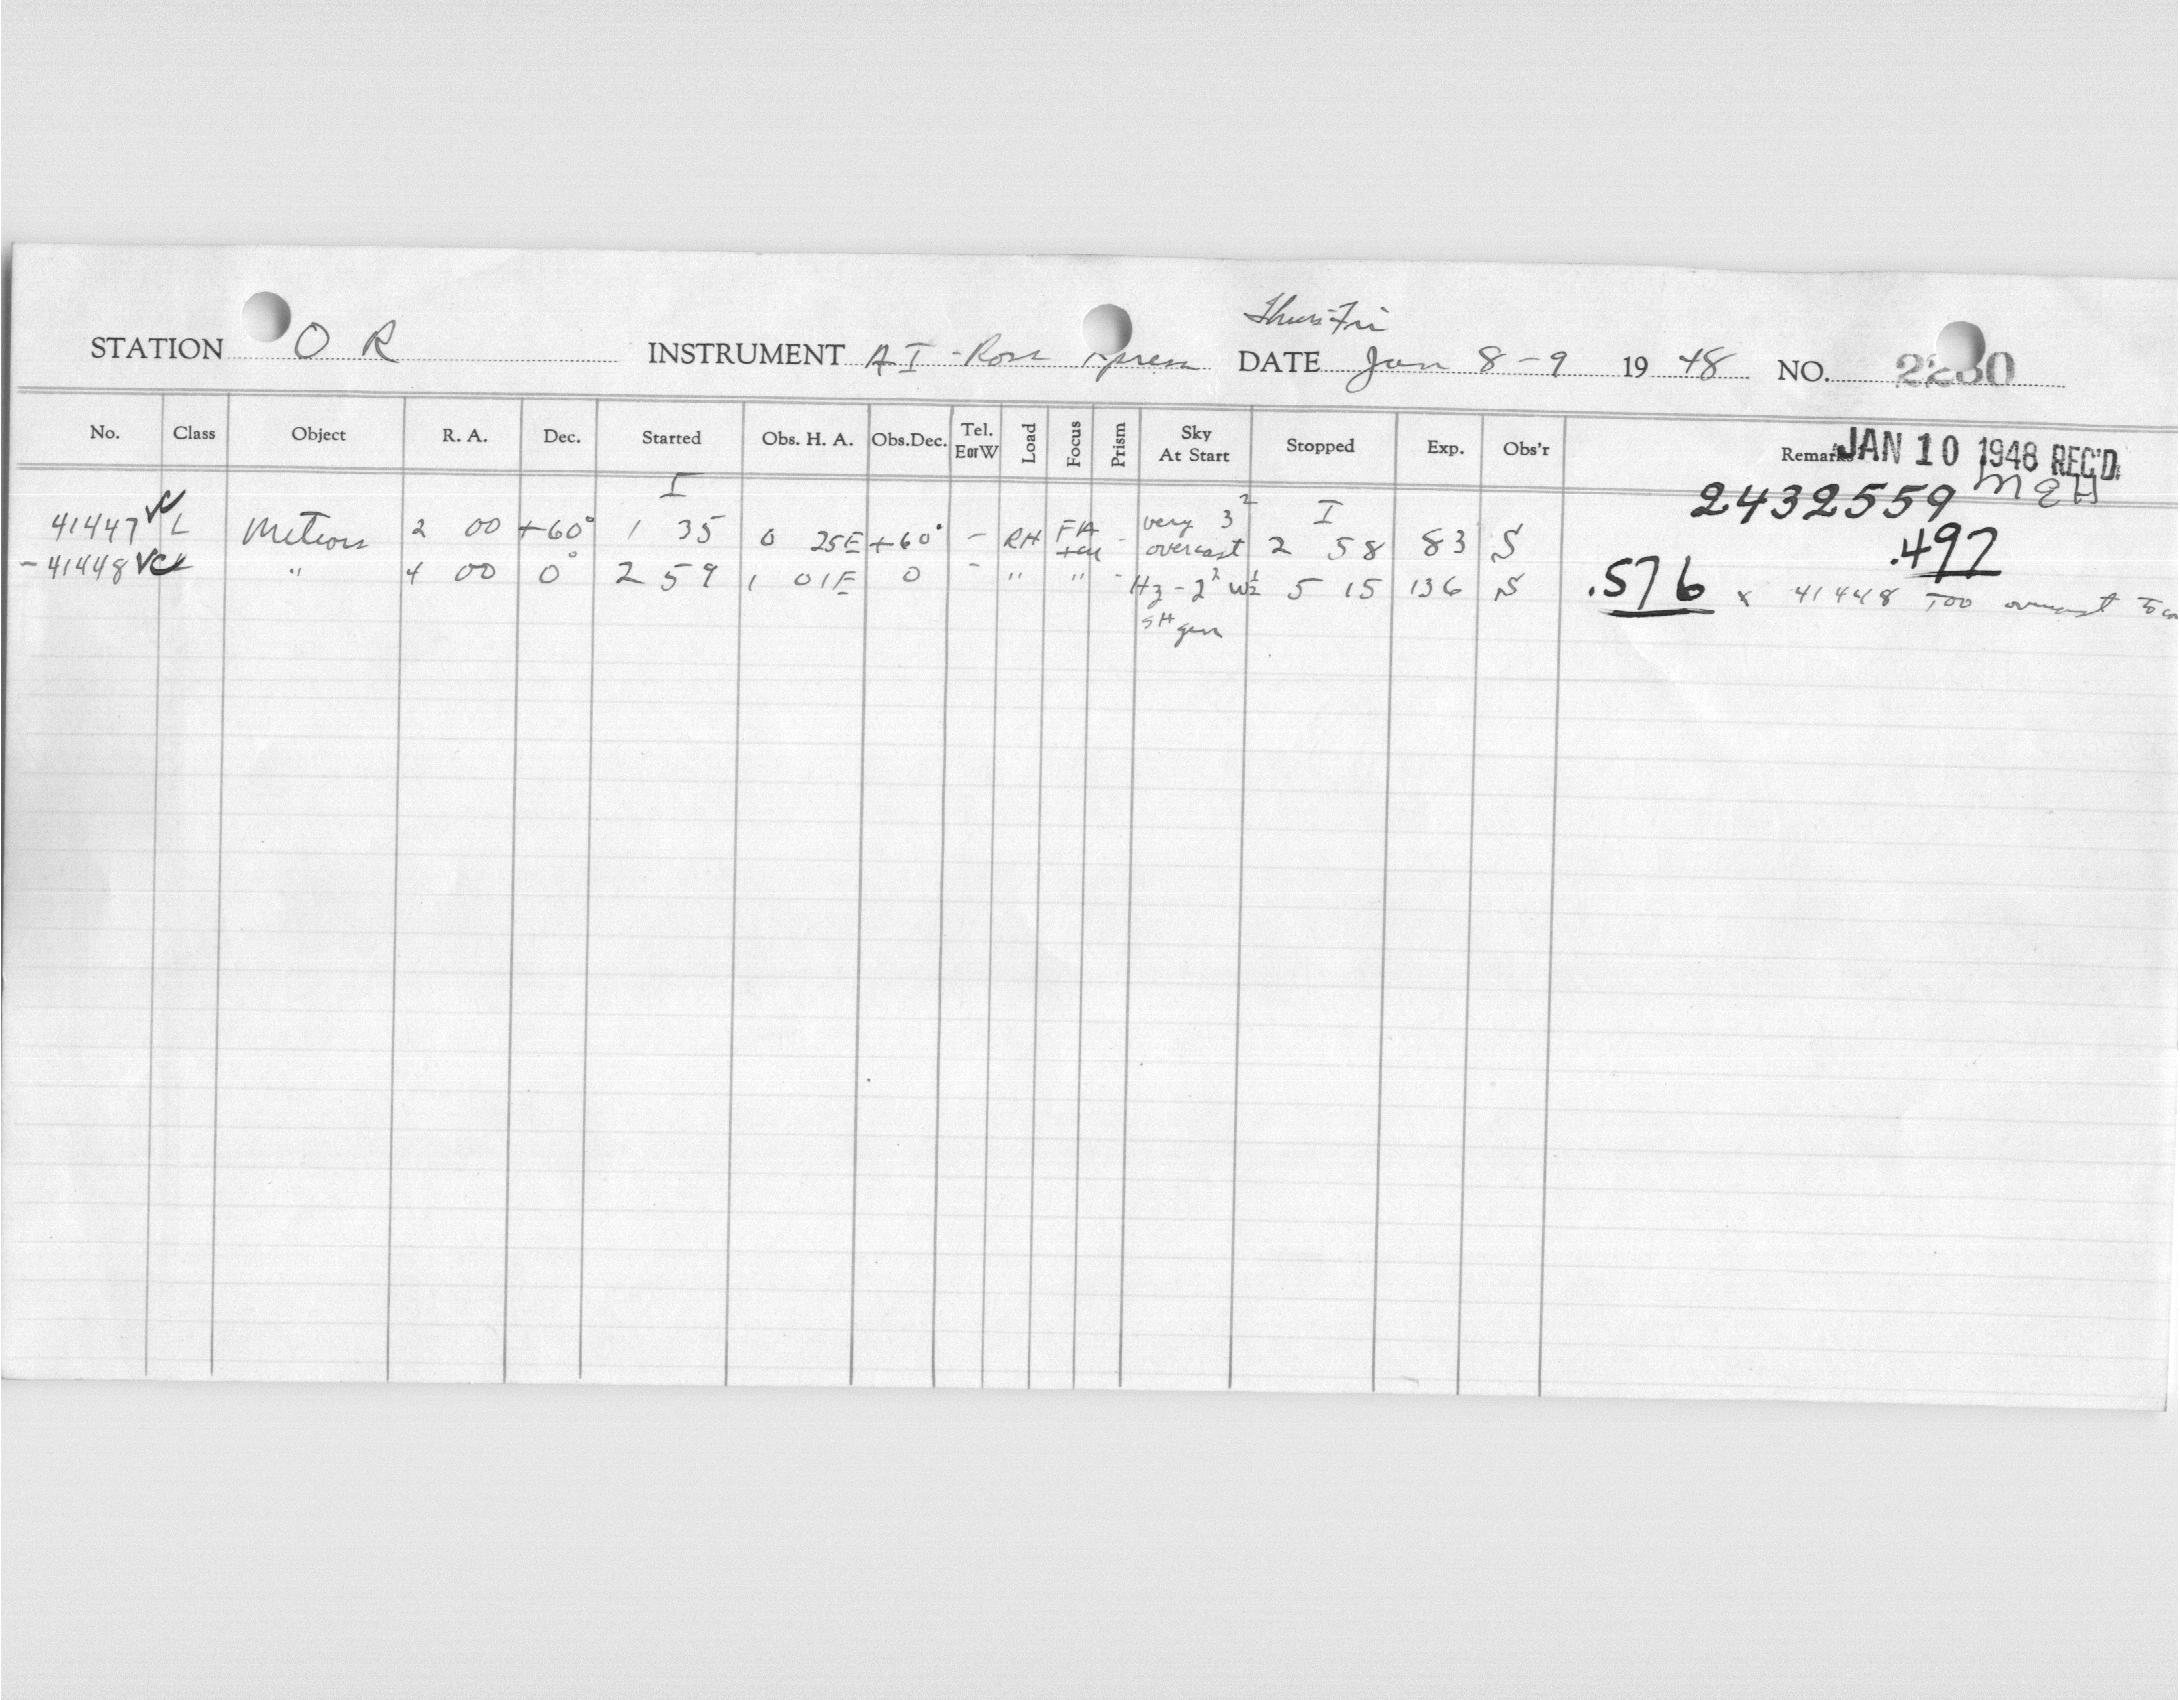 Thurs-Fri
STATION O R INSTRUMENT AI - Ross Xpress DATE Jan 8-9 1948 NO. 2230
No. Class Object R. A. Dec. Started Obs. H. A. Obs.Dec. Tel. E or W Load Focus Prism Sky At Start Stopped Exp. Obs'r Remarks
JAN 10 1948 REC'D.
2432559 MEH
I I
41447 L Meteors 2 00 +60° 1 35 0 25E +60° - RH - very 3² overcast 2 58 83 S .497
-41448 " 4 00 0° 2 59 1 01E 0 - " " - Hz - 2² W½ 5 15 136 S .576 x 41448 Too overcast To
SH gen